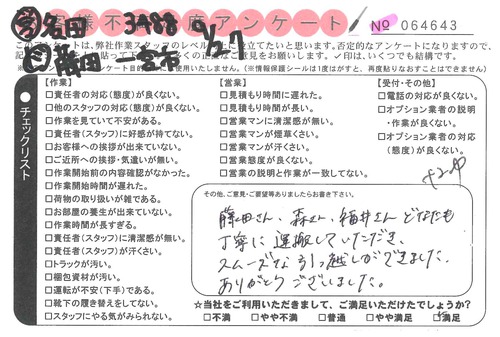 お客様不満足度アンケート No 064643
営 名田 3488 9/27
C 藤田 一宮市
このアンケートは、弊社作業スタッフのレベル
【作業】
□責任者の対応(態度)が良くない。
□他のスタッフの対応(態度)が良くない。
□作業を見ていて不安がある。
□責任者(スタッフ)に好感が持てない。
□お客様への挨拶が出来ていない。
□ご近所への挨拶・気遣いが無い。
□作業開始前の内容確認がなかった。
□作業開始時間が遅れた。
□荷物の取り扱いが雑である。
□お部屋の養生が出来ていない。
□作業時間が長すぎる。
□責任者(スタッフ)に清潔感が無い。
□責任者(スタッフ)が汗くさい。
□トラックが汚い。
□梱包資材が汚い。
□運転が不安(下手)である。
□靴下の履き替えをしてない。
□スタッフにやる気がみられない。
【営業】
□見積もり時間に遅れた。
□見積もり時間が長い。
□営業マンに清潔感が無い。
□営業マンが煙草くさい。
□営業マンが汗くさい。
□営業態度が良くない。
□営業の説明と作業が一致してない。
【受付・その他】
□電話の対応が良くない。
□オプション業者の説明
・作業が良くない。
□オプション業者の対応
(態度)が良くない。
チェックリスト
その他、ご意見・ご要望等ありましたらお書き下さい。
藤田さん、森さん、福井さん どなたも
丁寧に運搬していただき、
スムーズな引っ越しができました。
ありがとうございました。
☆当社をご利用いただきまして、ご満足いただけたでしょうか?
□不満 □やや不満 □普通 □やや満足 □満足